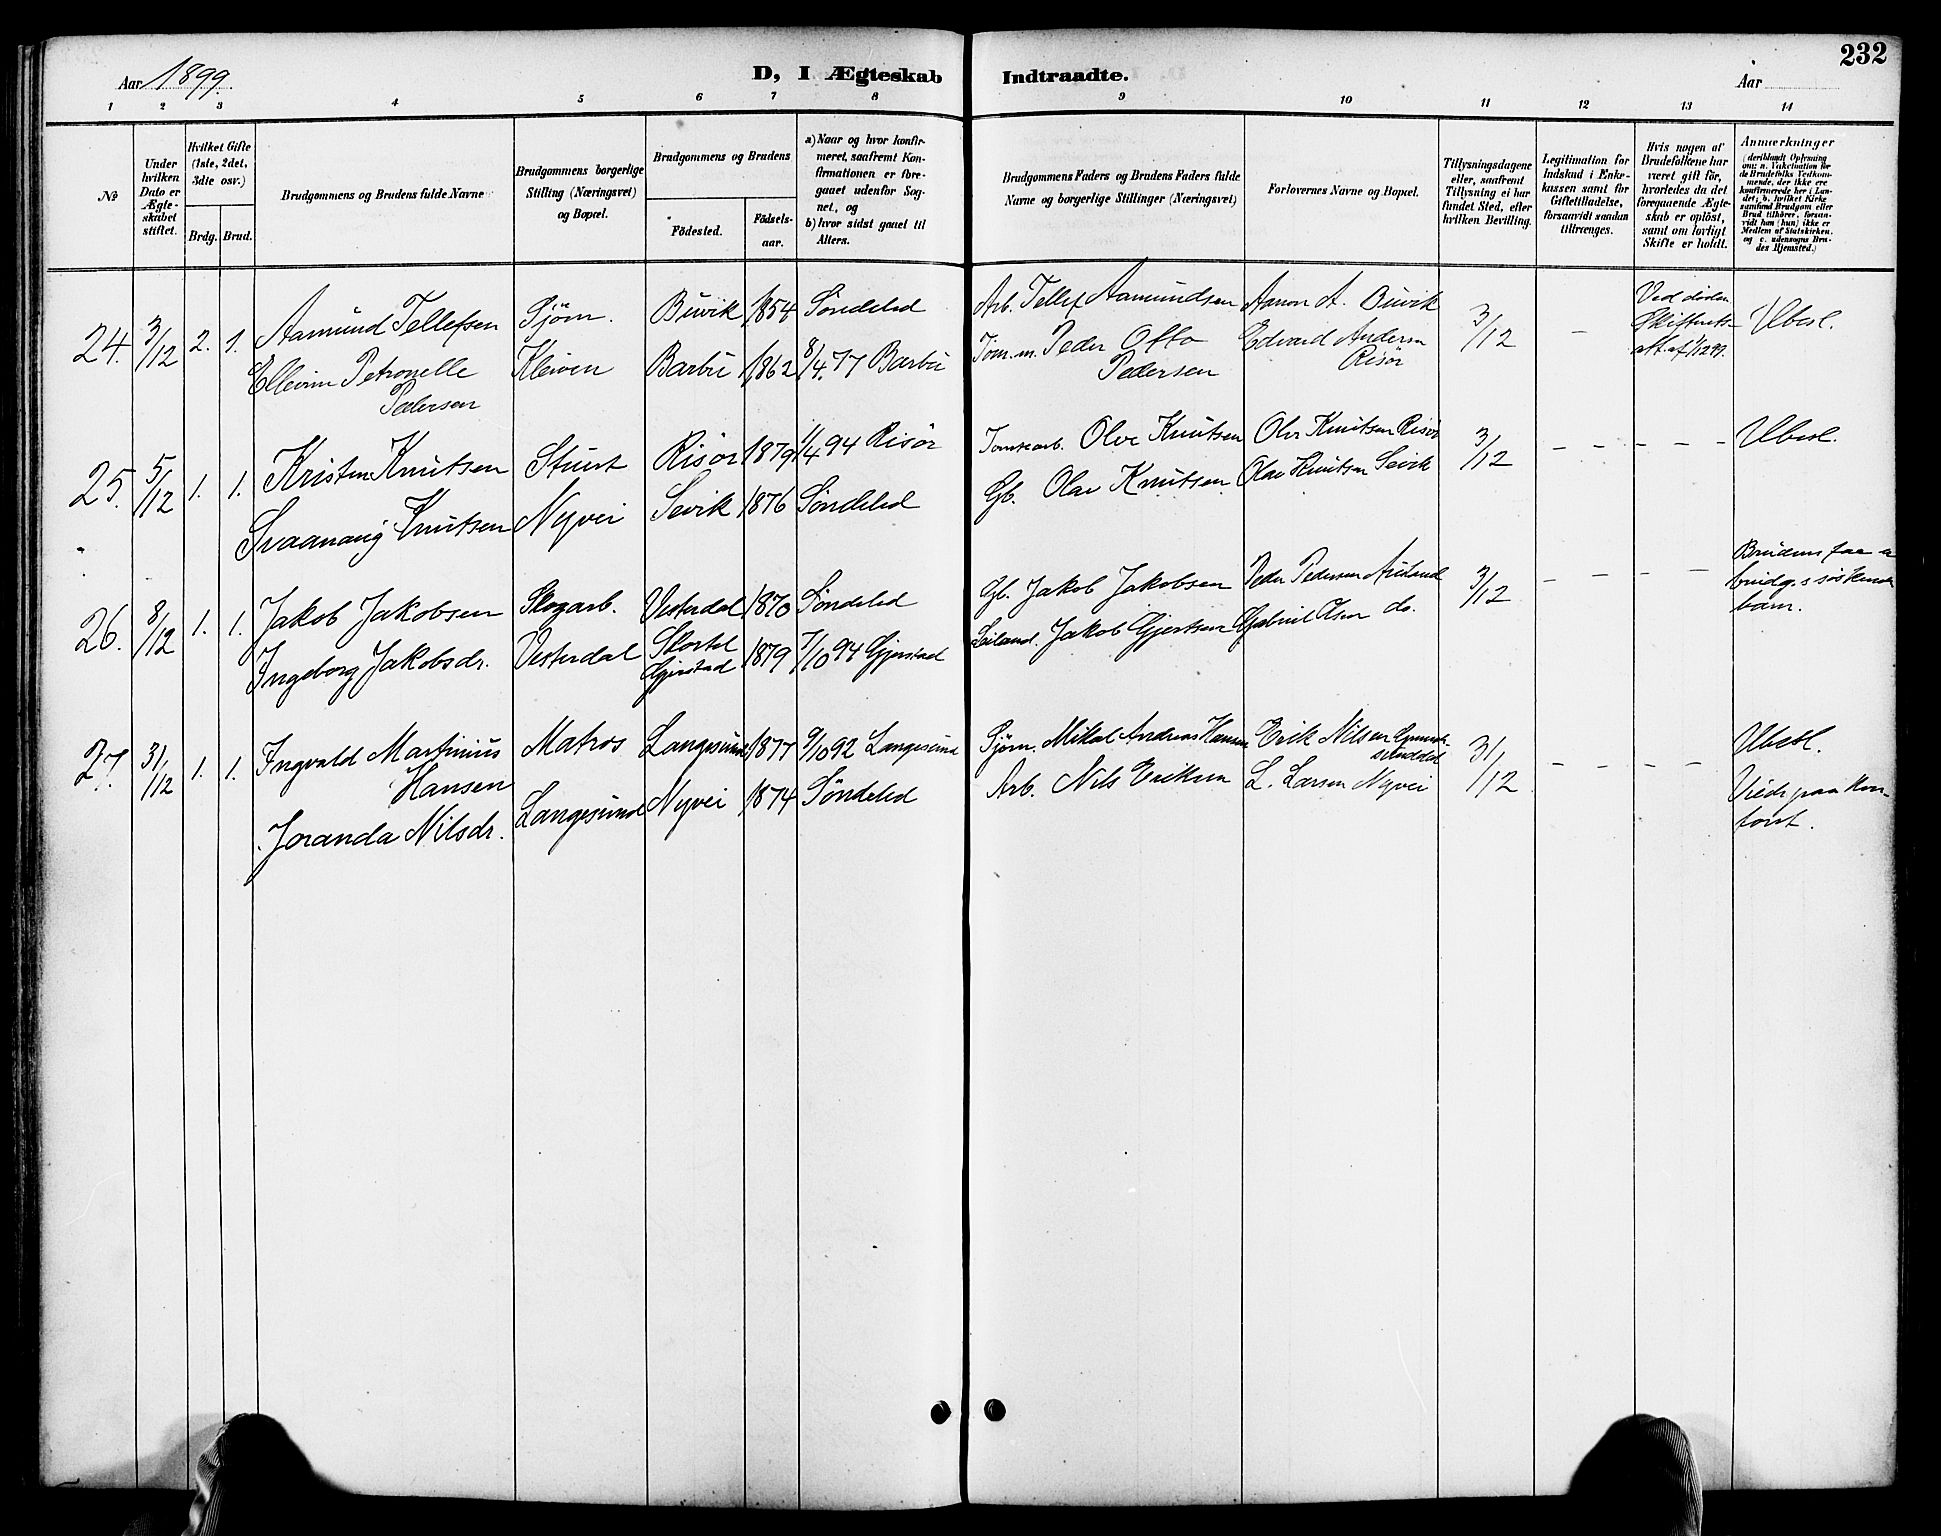 232
Aar 1899. D, I Ægteskab Indtraadte. Aar
1 2 3 4 5 6 7 8 9 10 11 12 13 14
№
Under hvilken Dato er Ægteskabet stiftet.
Hvilket Gifte (1ste, 2det, 3die osv.)
Brdg. Brud.
Brudgommens og Brudens fulde Navne
Brudgommens borgerlige Stilling (Næringsvei) og Bopæl.
Brudgommens og Brudens
Fødested.
Fødselsaar.
a) Naar og hvor konfirmeret, saafremt Konfirmationen er foregaaet udenfor Sognet, og
b) hvor sidst gaaet til Alters.
Brudgommens Faders og Brudens Faders fulde Navne og borgerlige Stillinger (Næringsvei)
Forlovernes Navne og Bopæl.
Tillysningsdagene eller, saafremt Tillysning ei har fundet Sted, efter hvilken Bevilling.
Legitimation for Indskud i Enkekassen samt for Giftetilladelse, forsaavidt saadan tiltrænges.
Hvis nogen af Brudefolkene har været gift før, hvorledes da det foregaaende Ægteskab er opløst, samt om lovligt Skifte er holdt.
Anmærkninger
(deriblandt Oplysning om: a. Vakcination for de Brudefolks Vedkommende, der ikke ere konfirmerede her i Landet; b. hvilket Kirkesamfund Brudgom eller Brud tilhører, forsaavidt han (hun) ikke er Medlem af Statskirken, og c. udensogns Brudes Hjemsted.)
24. 3/12 2. 1. Aamund Tellefsen Sjøm. Buvik 1854 Søndeled Arb. Tellef Aamundsen Aanon A. Buvik 3/12 - Ved døden Skifterets att. af 1/12 99. Ubesl.
Ellevine Petronelle Pedersen Kleven Barbu 1862 8/4. 77 Barbu Tøm.m. Peder Otto Pedersen Edvard Andersn Risør
25. 5/12 1. 1. Kristen Knutsen Stuert Risør 1879 1/4 94 Risør Tomtearb. Olve Knutsen Olve Knutsen Risør 3/12 - - - - - Ubesl.
Svaanaug Knutsen Nyvei Sevik 1876 Søndeled Gb. Olav Knutsen Olav Knutsen Sevik
26. 8/12 1. 1. Jakob Jakobsen Skogarb. Vesterdal 1870 Søndeled Gb. Jakob Jakobsen Peder Pedersen 3/12 - - - - Brudens far er brudg.s søskendebarn.
Ingeborg Jakobsdr. Vesterdal Gjerstad 1879 7/10 94 Gjerstad Jakob Gjertsen Gabriel Olsen do.
27. 31/12 1. 1. Ingvald Martinius Hansen Matros Langesund 1877 9/10 92 Langesund Sjøm. Mikal Andreas Hansen Erik Nilsen 31/12 - - - - Ubesl.
Joranda Nilsdr. Langesund Nyvei 1874 Søndeled Arb. Nils Eriksen L. Larsen Nyvei Viede paa Kontoret.